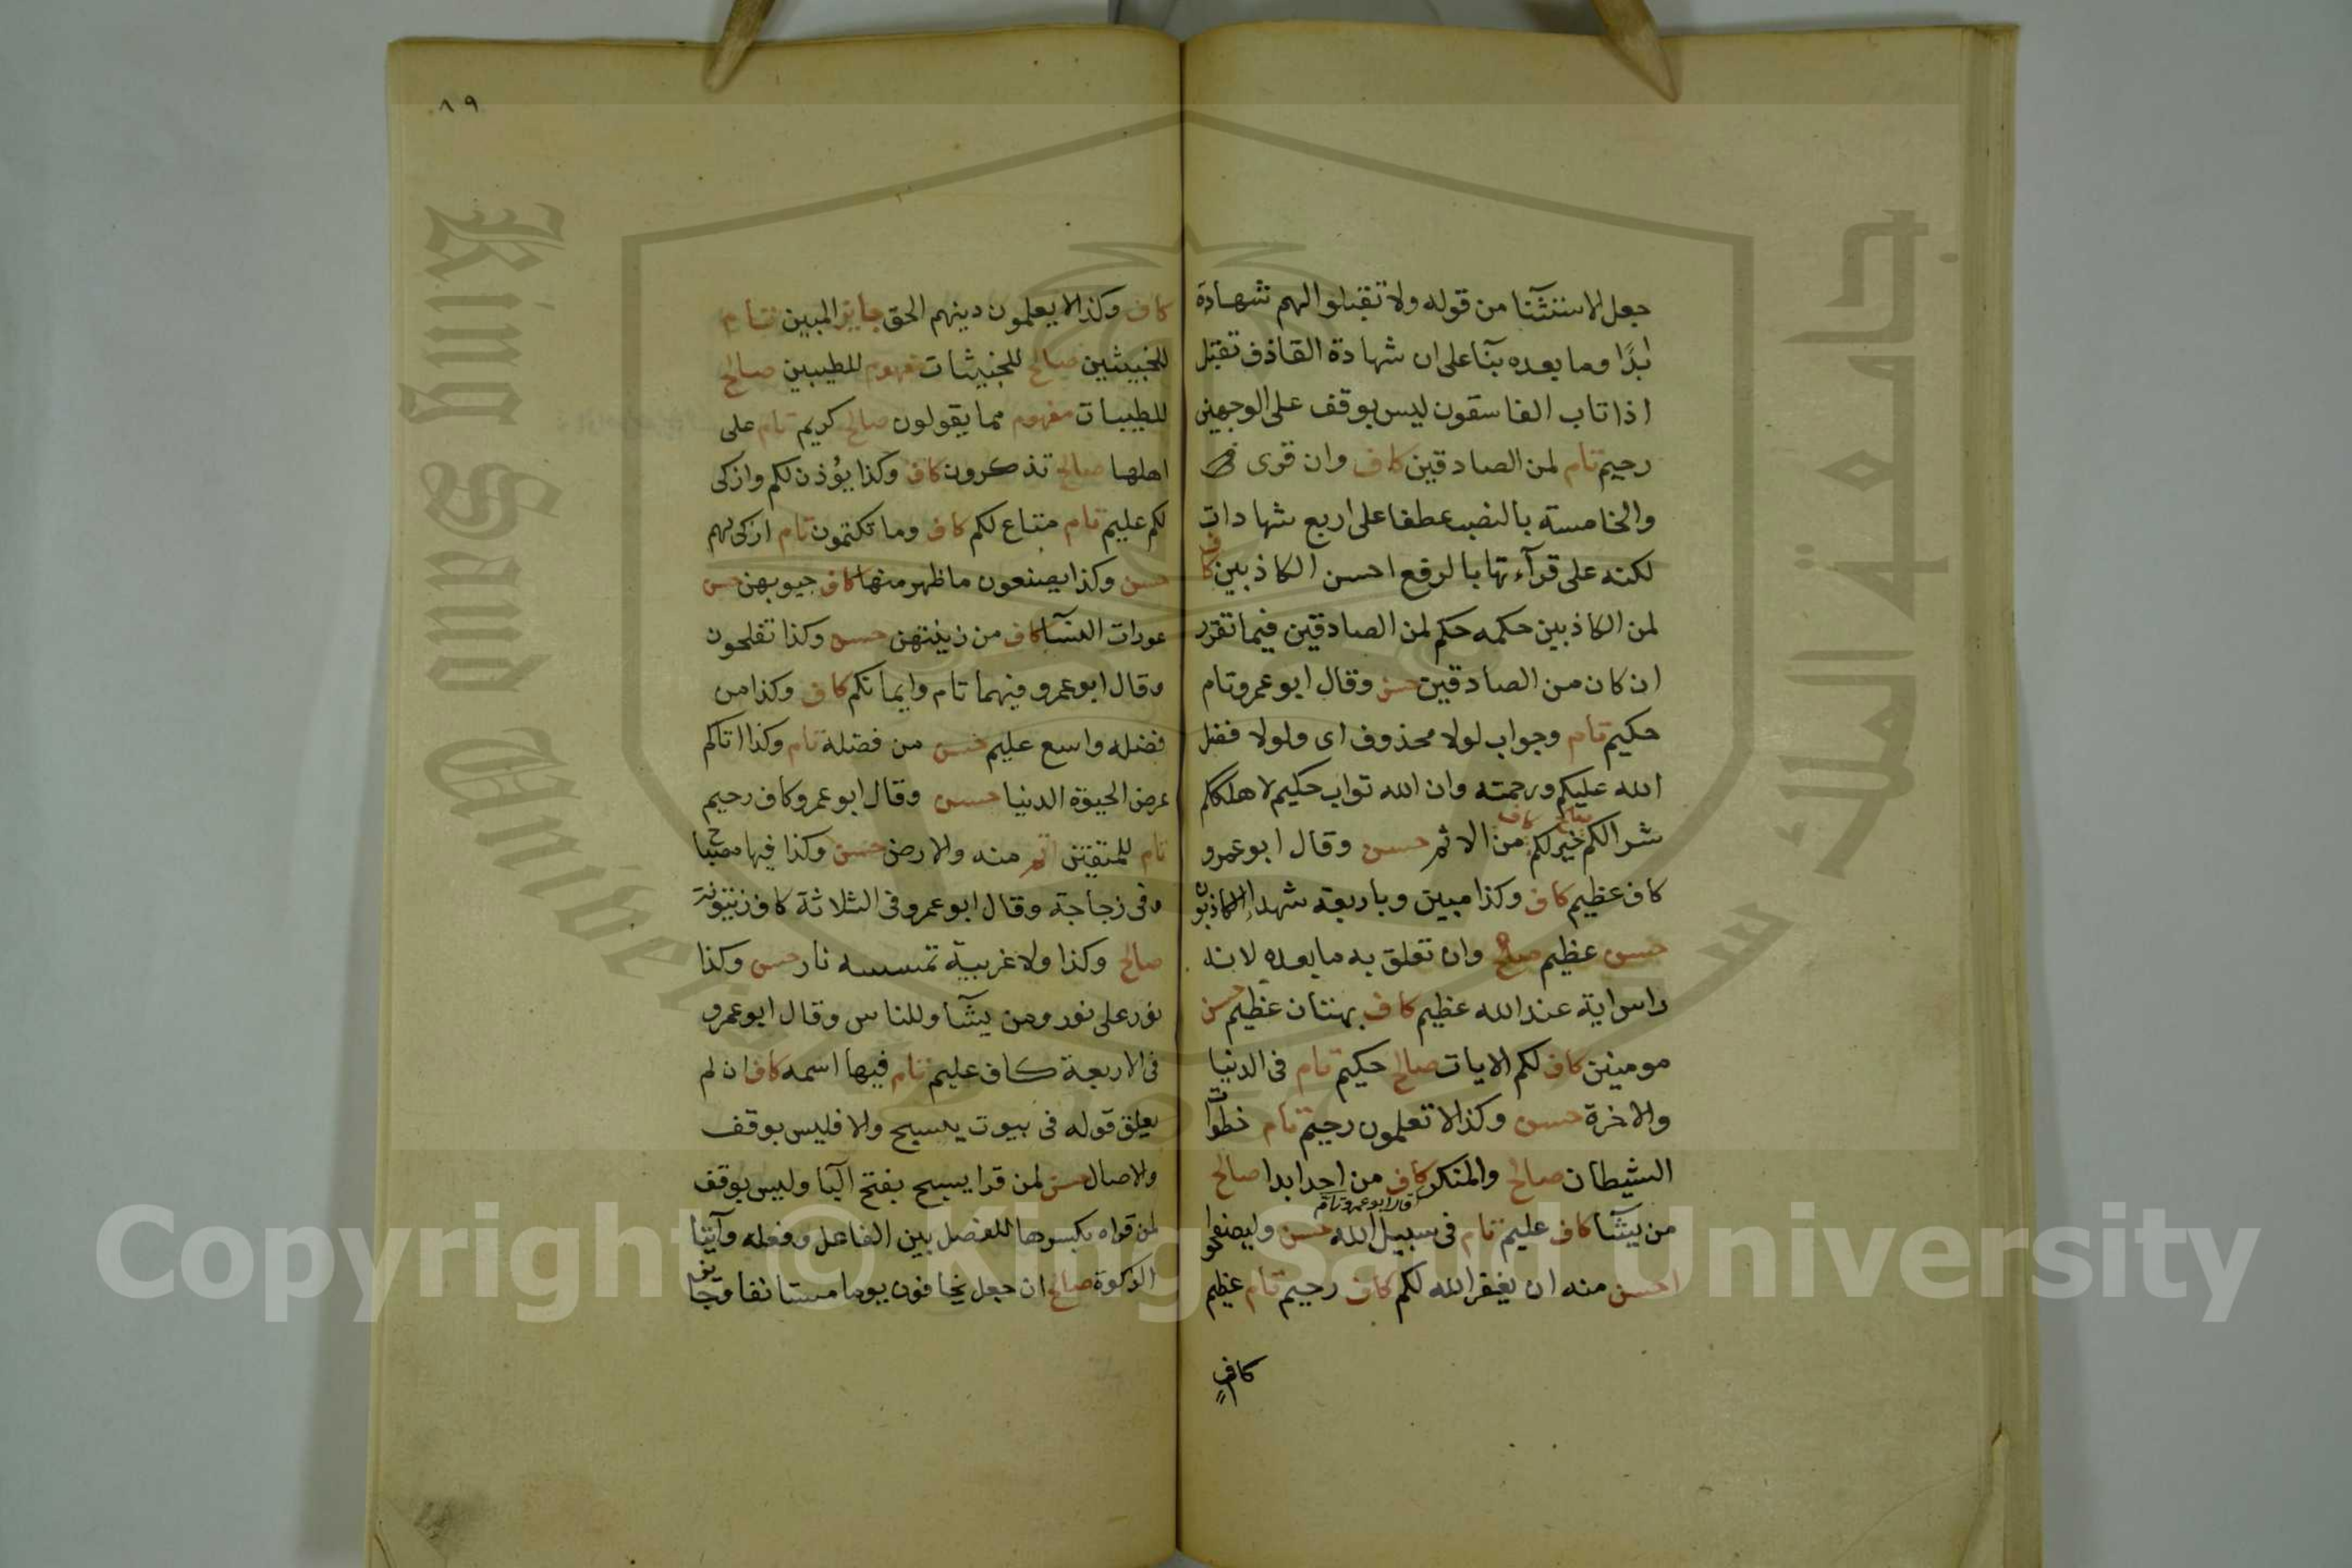 جعل لاستثنآنا من قوله ولا تقبلوا لهم شهادة
ابدًا وما بعده بنآ على ان شهادة القاذف تقبل
اذا تاب الفاسقون ليس بوقف على الوجهين
رحيم تام لمن الصادقين كاف وان قرى
والخامسة بالنصب عطفا على اربع شهادات
لكنه على قرآءتها بالرفع احسن الكاذبين كاف
لمن الكاذبين حكمه حكم لمن الصادقين فيما تقرر
ان كان من الصادقين حسن وقال ابوعمرو تام
حكيم تام وجواب لولا محذوف اى ولولا فضل
الله عليكم ورحمته وان الله تواب حكيم لاهلككم
شرا لكم صالح خير لكم كاف من الاثم حسن وقال ابوعمرو
كاف عظيم كاف وكذا مبين وباربعة شهدا الكاذبون
حسن عظيم صالح وان تعلق به ما بعده لانه
راس اية عند الله عظيم كاف بهتان عظيم حسن
مومنين كاف لكم الايات صالح حكيم تام فى الدنيا
والاخرة حسن وكذا لا تعلمون رحيم تام خطوات
الشيطان صالح والمنكر كاف من احد ابدا صالح
قال ابوعمرو تام
من يشآ كاف عليم تام فى سبيل الله حسن وليصفحوا
احسن منه ان يغفر الله لكم كاف رحيم تام عظيم
كاف
٨٩
كاف وكذا لا يعلمون دينهم الحق جايز المبين تام
للخبيثين صالح للخبيثات مفهوم للطيبين صالح
للطيبات مفهوم مما يقولون صالح كريم تام على
اهلها صالح تذكرون كاف وكذا يؤذن لكم وازكى
لكم عليم تام متاع لكم كاف وما تكتمون تام ازكى لهم
حسن وكذا يصنعون ما ظهر منها كاف جيوبهن حسن
عورات النسآ كاف من زينتهن حسن وكذا تفلحون
وقال ابوعمرو فيهما تام وايمانكم كاف وكذا من
فضله واسع عليم حسن من فضله تام وكذا اتاكم
عرض الحيوة الدنيا حسن وقال ابوعمرو كاف رحيم
تام للمتقين اتم منه والارض حسن وكذا فيها مصباح
وفى زجاجة وقال ابوعمرو فى الثلاثة كاف زيتونة
صالح وكذا ولا غربية تمسسه نار حسن وكذا
نور على نور ومن يشآ وللناس وقال ابوعمرو
فى الاربعة كاف عليم تام فيها اسمه كاف ان لم
يعلق قوله فى بيوت بيسبح والا فليس بوقف
والاصال حسن لمن قرا يسبح بفتح البآ وليس بوقف
لمن قراه بكسرها للفصل بين الفاعل وفعله وآيتا
الزكوة صالح ان جعل يخافون يوما مستانفا وجايز
جامعة الملك سعود
King Saud University
1957
Copyright © King Saud University